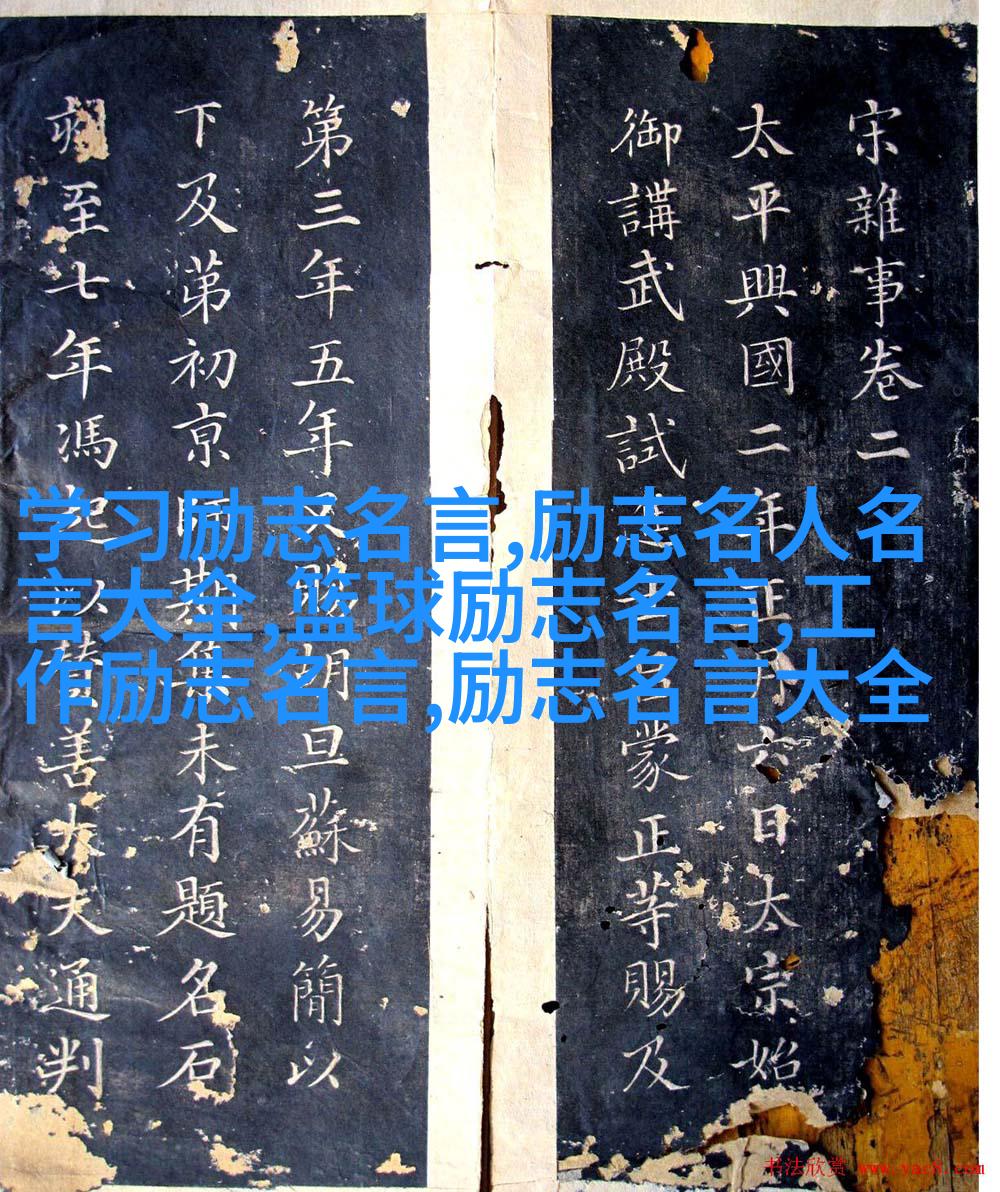 宋雜事卷二
太平興國二年正月六日太宗始
御講武殿試
蒙正等賜及
第三年五年
賜胡旦蘇易簡以
下及第初京師
集未有題名石
至七年馮起以
善大夫通判
学习励志名言,励志名人名
言大全,篮球励志名言,工
作励志名言,励志名言大全
书法欣赏 www.yac8.com